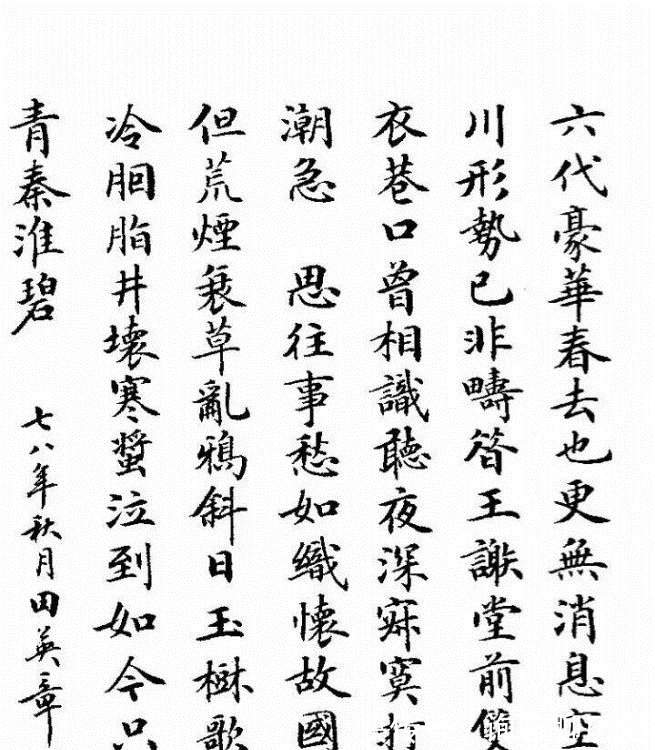 六代豪華春去也更無消息空
川形勢已非疇昔王謝堂前雙
衣巷口曾相識聽夜深寂寞打
潮急 思往事愁如織懷故國
但荒煙衰草亂鴉斜日玉樹歌
冷胭脂井壞寒螿泣到如今只
青秦淮碧
七八年秋月田英章